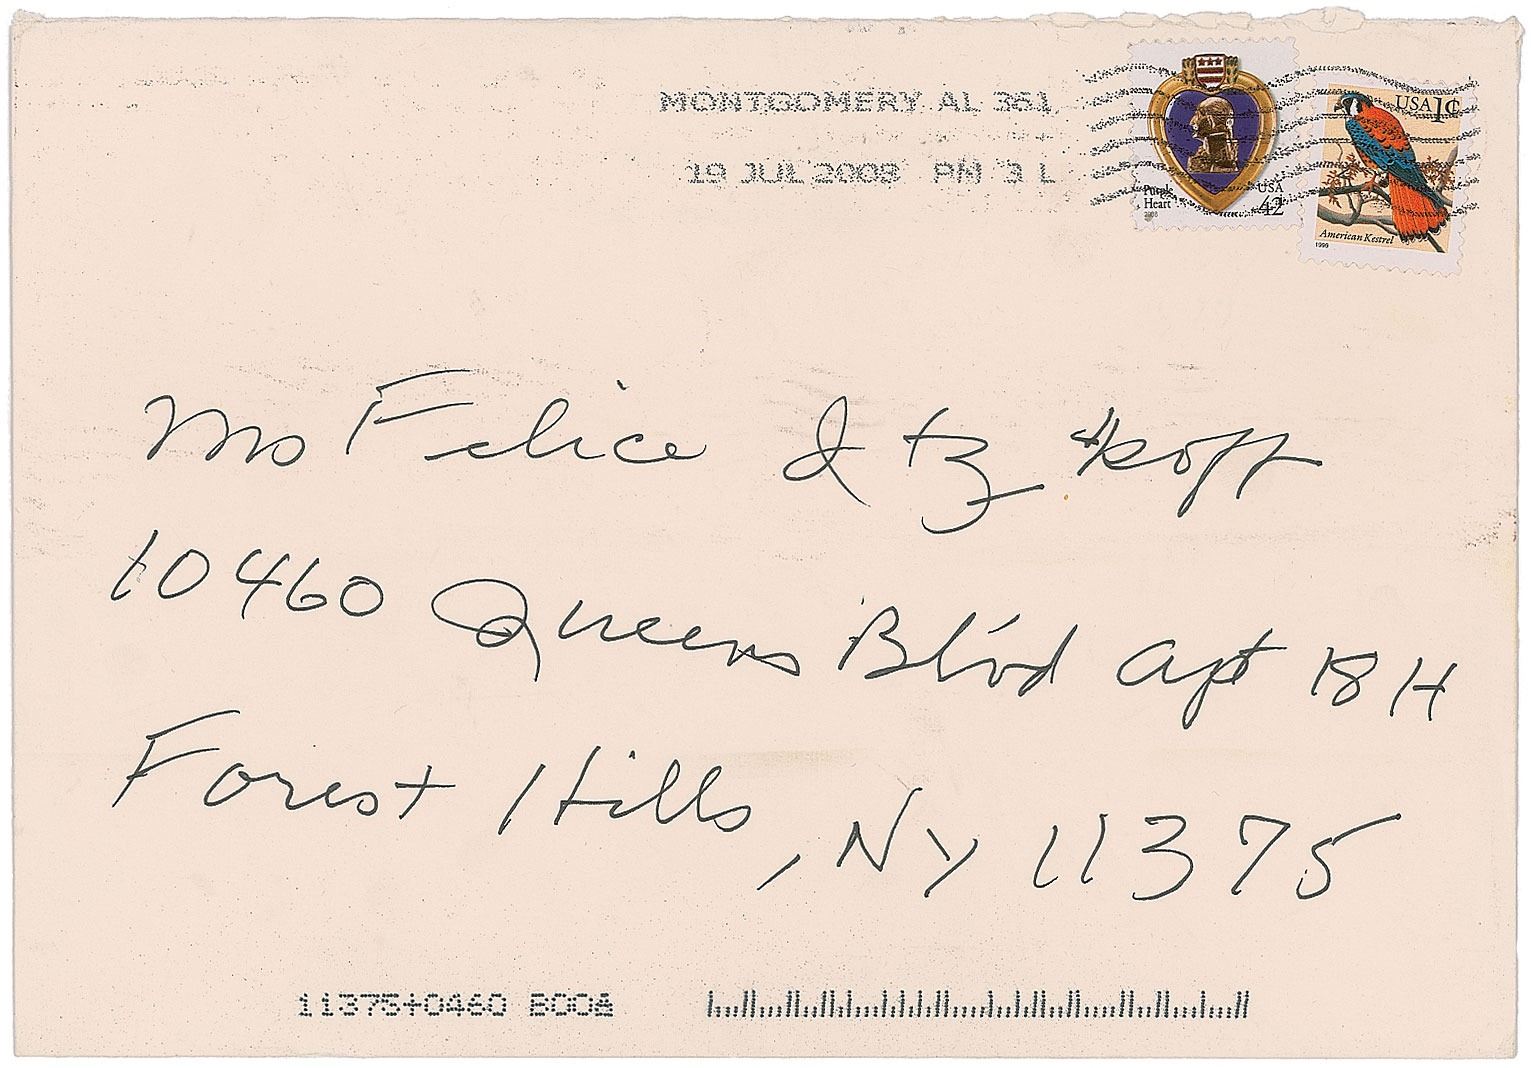 MONTGOMERY AL 361
19 JUL 2008 PM 3 L
Purple Heart
2008
USA 42
USA 1¢
American Kestrel
1999
Ms Felice Itzkoff
10460 Queens Blvd Apt 18H
Forest Hills, NY 11375
11375+0460